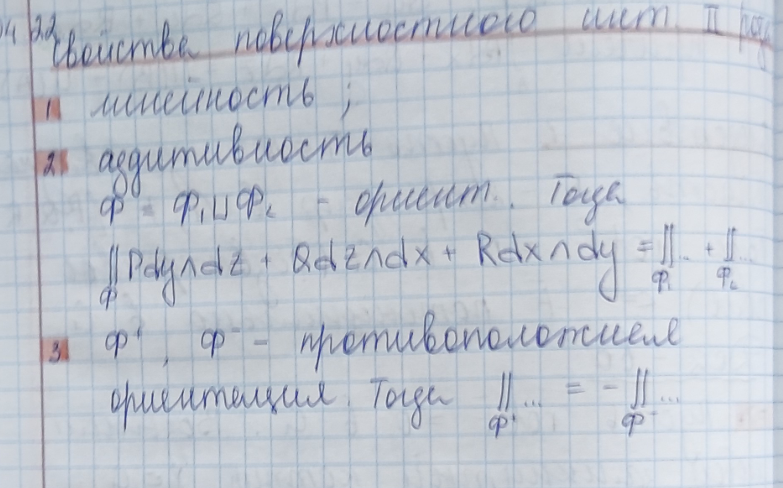 22
Свойства поверхностного инт. II рода
1 линейность ;
2 аддитивность
Ф = Ф₁ ⊔ Ф₂ – ориент. Тогда
∬ Pdy∧dz + Qdz∧dx + Rdx∧dy = ∬... + ∬...
Ф Ф₁ Ф₂
3 Ф⁺, Ф⁻ – противоположная
ориентация. Тогда ∬... = – ∬...
Ф⁺ Ф⁻